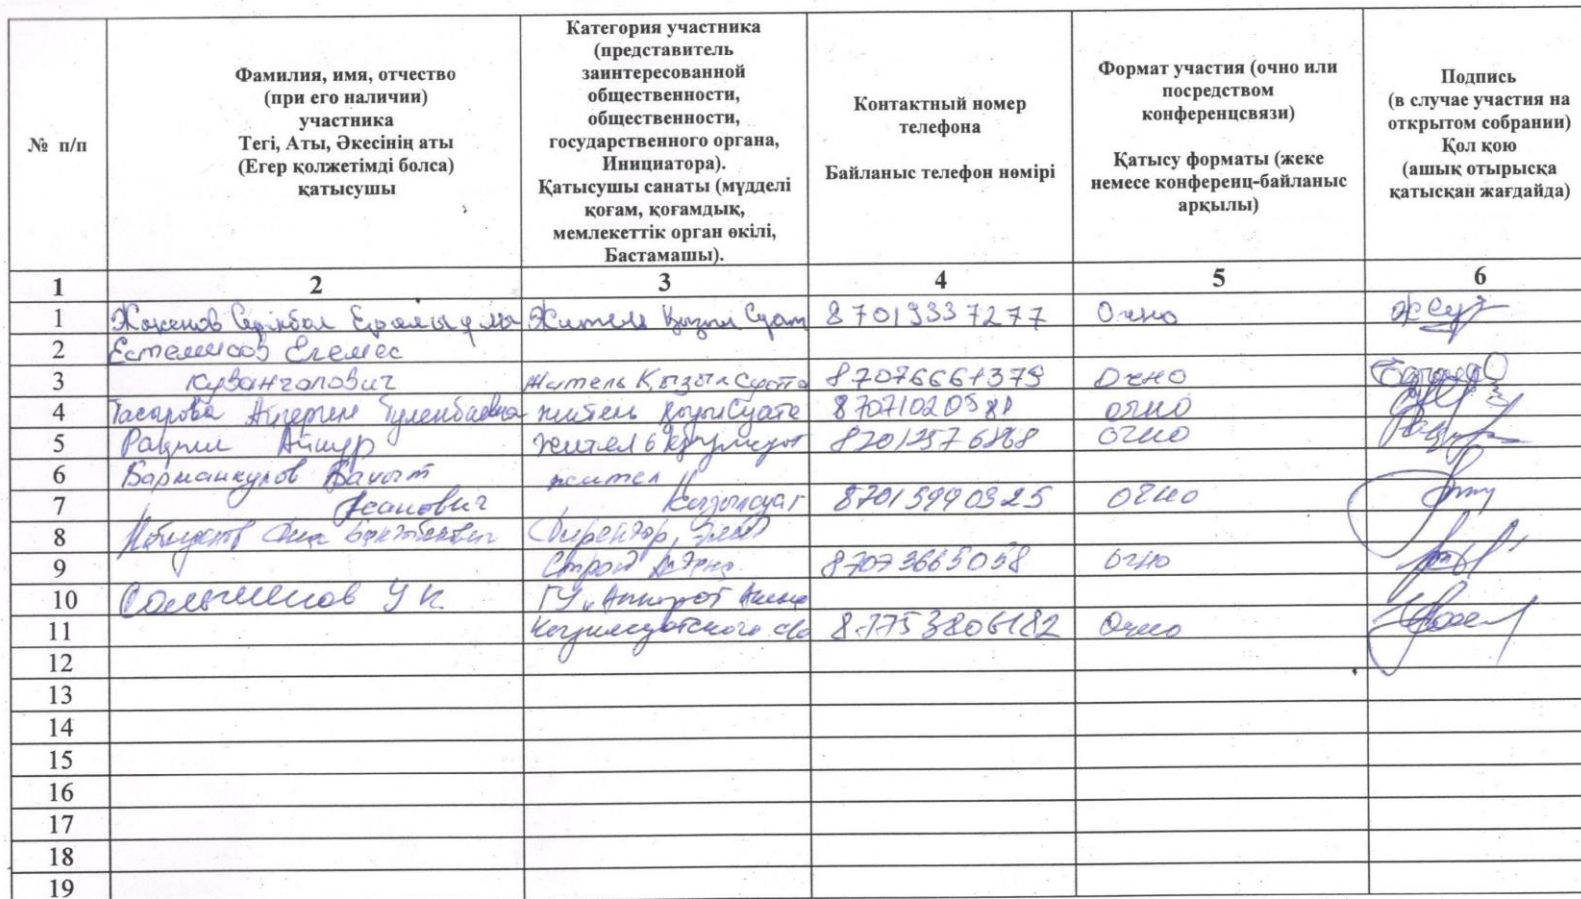 № п/п
Фамилия, имя, отчество
(при его наличии)
участника
Тегі, Аты, Әкесінің аты
(Егер қолжетімді болса)
қатысушы
Категория участника
(представитель
заинтересованной
общественности,
общественности,
государственного органа,
Инициатора).
Қатысушы санаты (мүдделі
қоғам, қоғамдық,
мемлекеттік орган өкілі,
Бастамашы).
Контактный номер
телефона
Байланыс телефон нөмірі
Формат участия (очно или
посредством
конференцсвязи)
Қатысу форматы (жеке
немесе конференц-байланыс
арқылы)
Подпись
(в случае участия на
открытом собрании)
Қол қою
(ашық отырысқа
қатысқан жағдайда)
1 2 3 4 5 6
1 Ералыұлы Жители Қызыл Суат 87019337277 Очно
2 Естемисов Егемес
3 Куванганович житель Қызыл Суата 87076661379 Очно
4 Тасырова Туленбаевна житель 87071020581 очно
5 Айнур очно
6 Барманкулов Бахыт жител
7 Усанович Кызылсуат 87015990325 очно
8 Директор
9 Строй 87073665058 очно
10 У К. ГУ "Аппарат Акима
11 Кызылсуатского с/о 8-7753806182 Очно
12
13
14
15
16
17
18
19